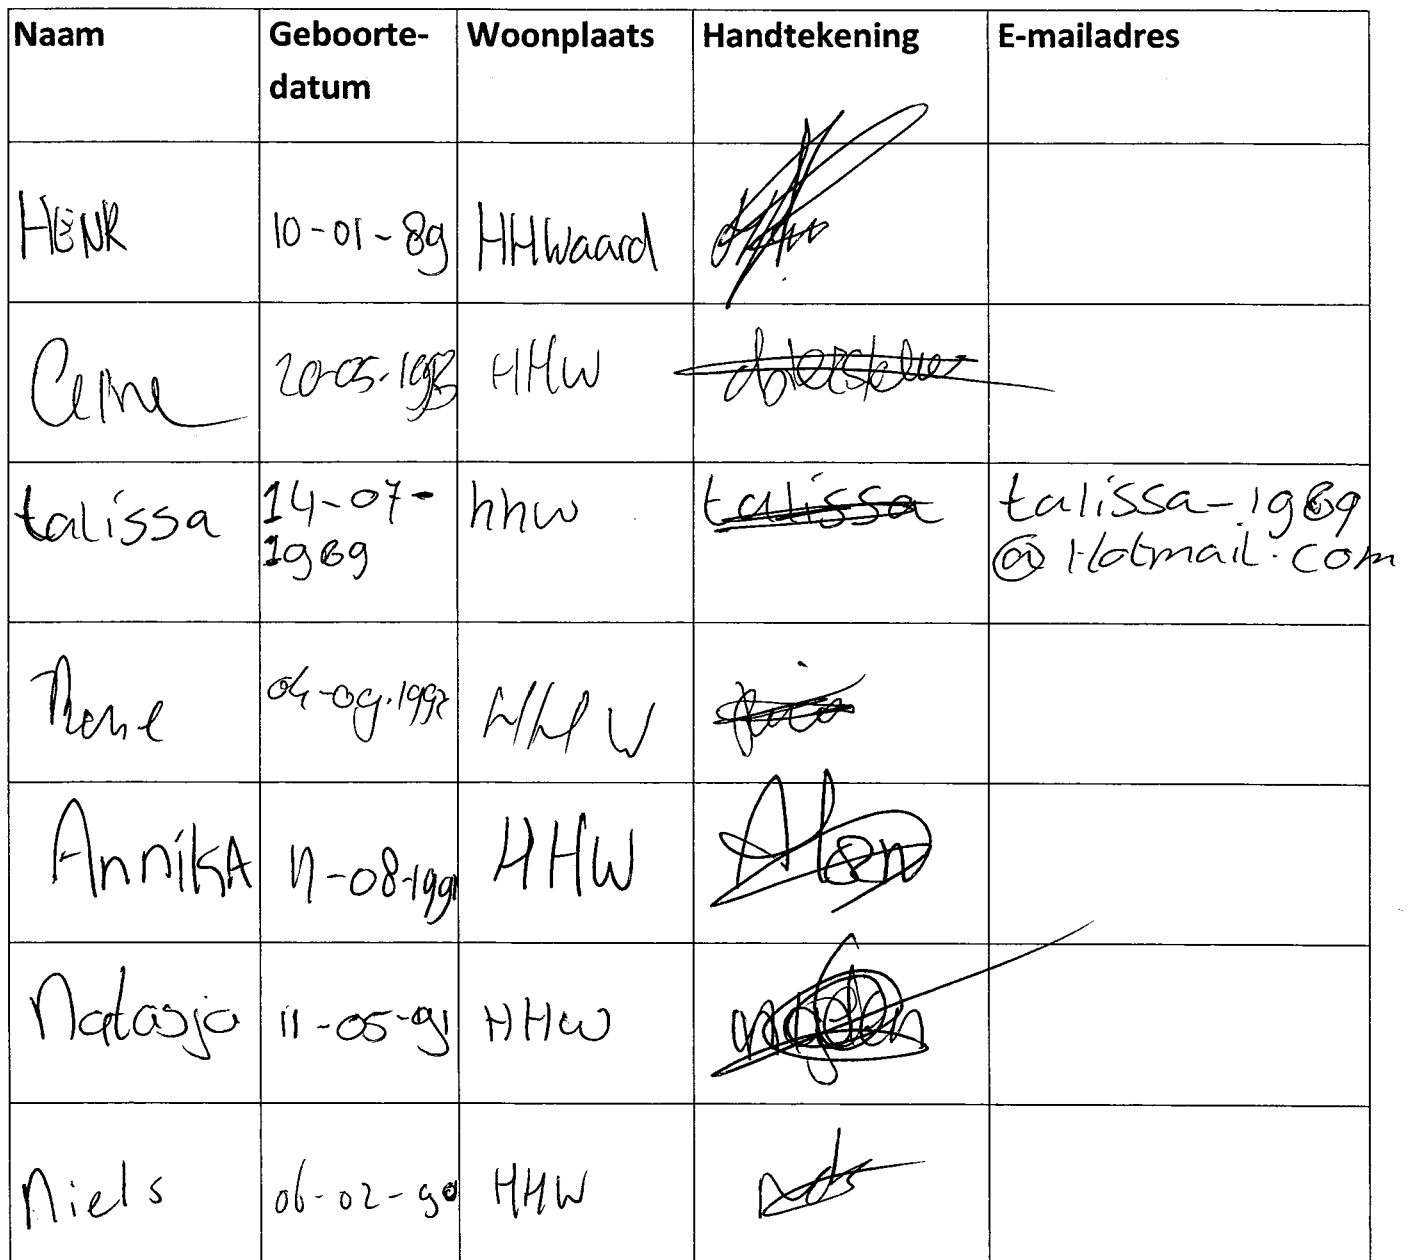 Naam Geboorte- Woonplaats Handtekening E-mailadres
datum
HENK 10-01-89 HHWaard
20-05-1993 HHW
talissa 14-07- hhw talissa talissa-1989
1989 @Hotmail.com
Rene 04-09-1992 HHW
AnnikA 11-08-1991 HHW
Natasja 11-05-91 HHW
Niels 06-02-90 HHW